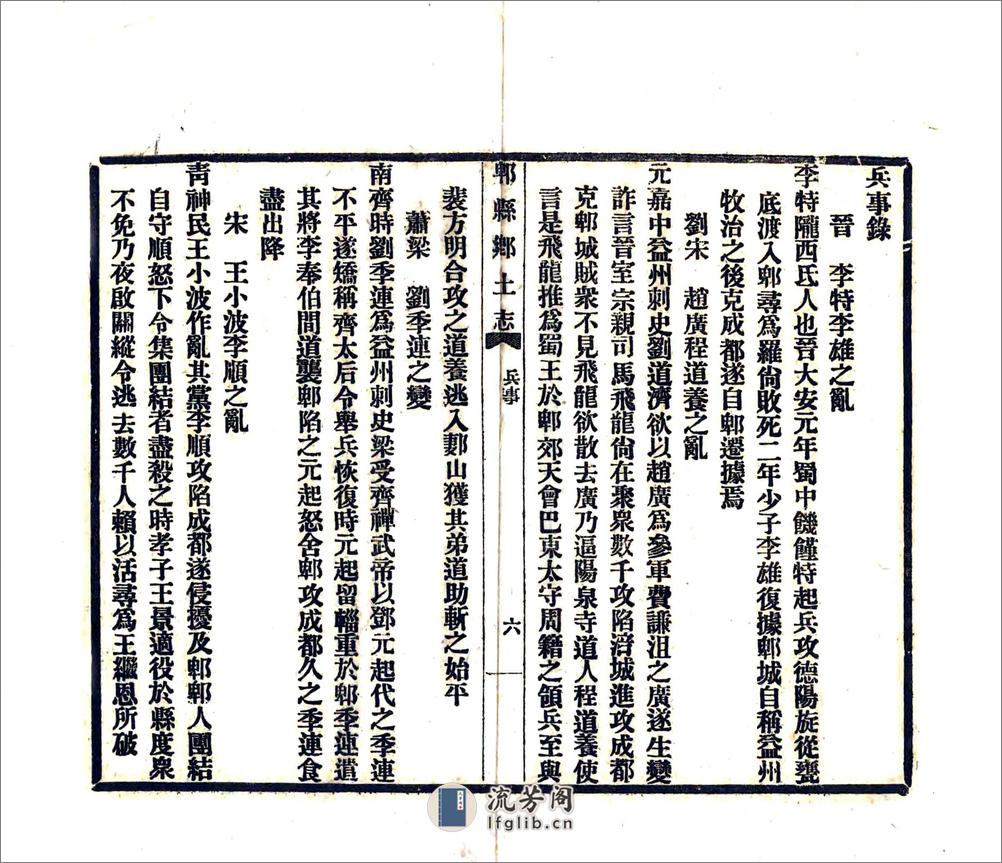 兵事錄
晉　李特李雄之亂
李特隴西氐人也晉大安元年蜀中饑饉特起兵攻德陽旋從甕
底渡入郫尋爲羅尙敗死二年少子李雄復據郫城自稱益州
牧治之後克成都遂自郫遷據焉
劉宋　趙廣程道養之亂
元嘉中益州刺史劉道濟欲以趙廣爲參軍費謙沮之廣遂生變
詐言晉室宗親司馬飛龍尙在聚衆數千攻陷涪城進攻成都
克郫城賊衆不見飛龍欲散去廣乃逼陽泉寺道人程道養使
言是飛龍推爲蜀王於郫郊天會巴東太守周籍之領兵至與
郫縣鄉土志　兵事　六
裴方明合攻之道養逃入郪山獲其弟道助斬之始平
蕭梁　劉季連之變
南齊時劉季連爲益州刺史梁受齊禪武帝以鄧元起代之季連
不平遂矯稱齊太后令舉兵恢復時元起留輜重於郫季連遣
其將李奉伯間道襲郫陷之元起怒舍郫攻成都久之季連食
盡出降
宋　王小波李順之亂
青神民王小波作亂其黨李順攻陷成都遂侵擾及郫郫人團結
自守順怒下令集團結者盡殺之時孝子王景適役於縣度衆
不免乃夜啟關縱令逃去數千人賴以活尋爲王繼恩所破
流芳阁
lfglib.cn